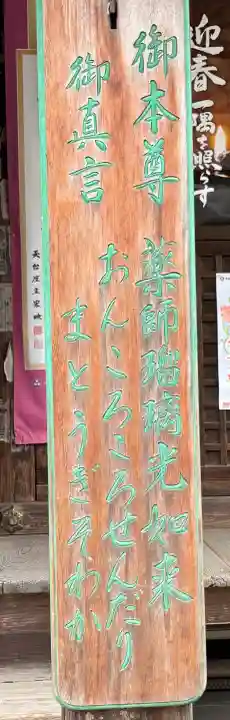 御本尊 薬師瑠璃光如来
御真言 おんころころせんだり
まとうぎそわか
迎春 一隅を照らす